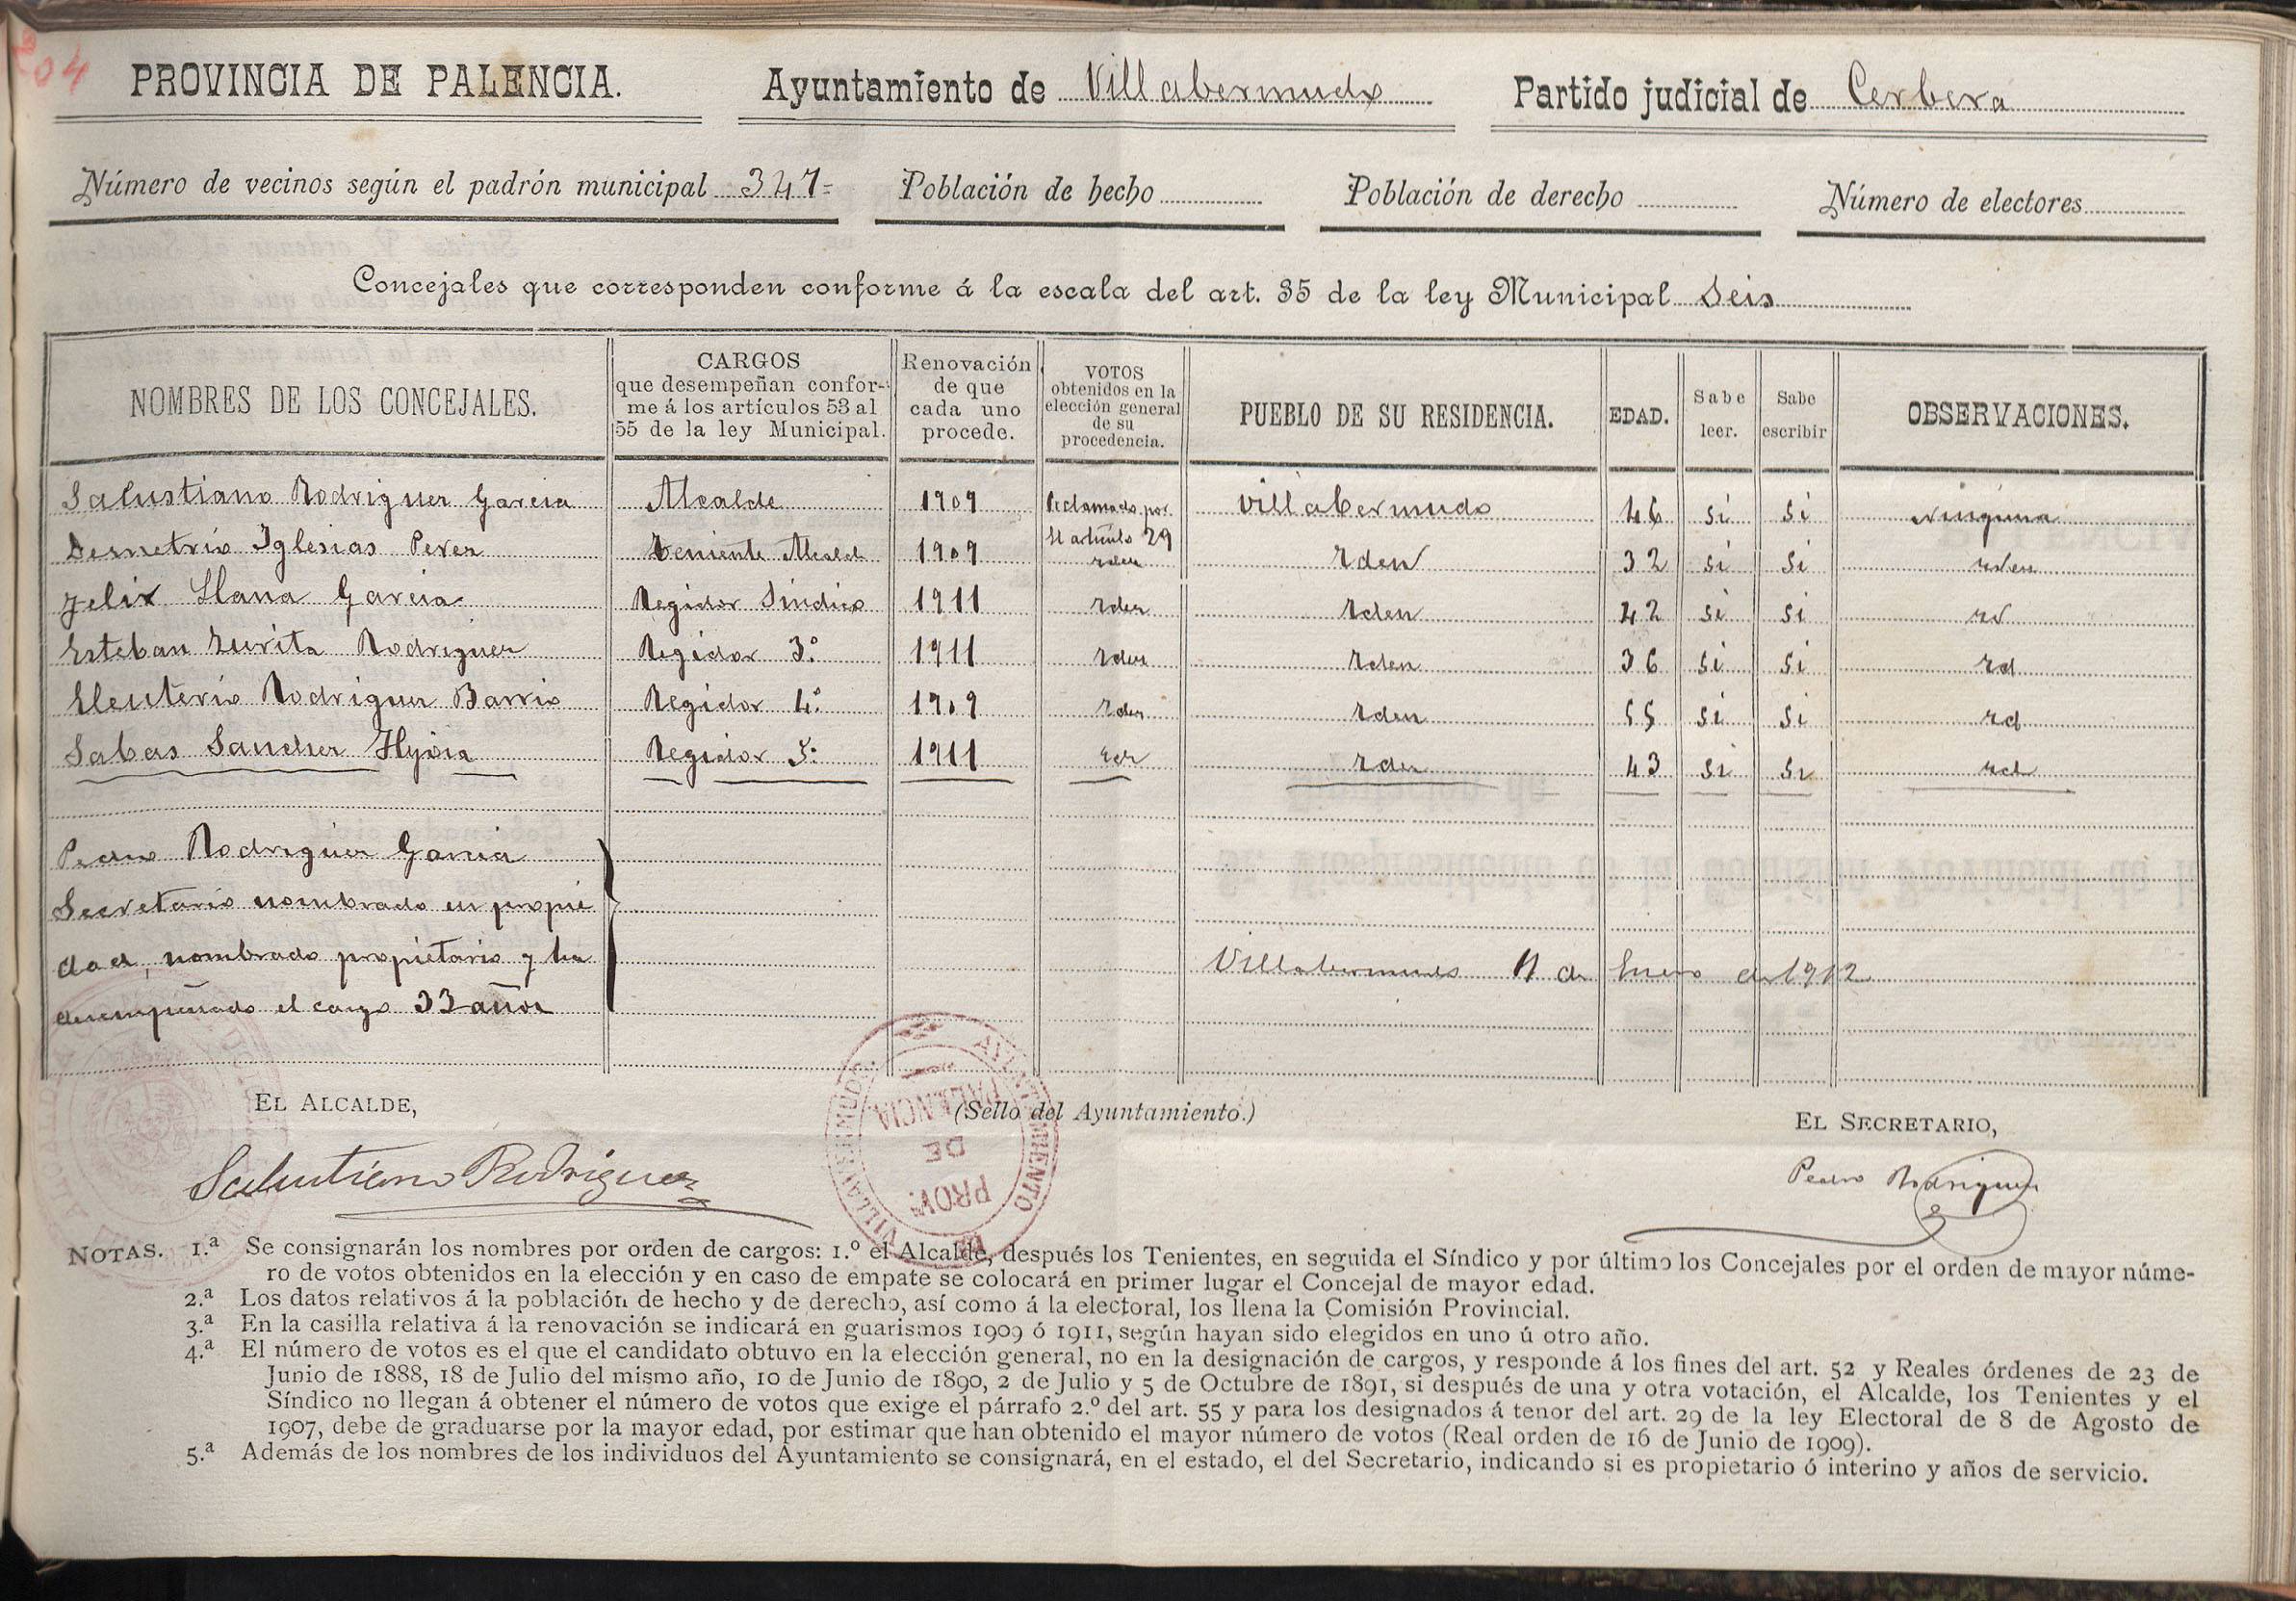 204
PROVINCIA DE PALENCIA. Ayuntamiento de Villabermudo Partido judicial de Cerbera
Número de vecinos según el padrón municipal 347= Población de hecho Población de derecho Número de electores
Concejales que corresponden conforme á la escala del art. 35 de la ley Municipal Seis
NOMBRES DE LOS CONCEJALES. CARGOS que desempeñan confor-me á los artículos 53 al 55 de la ley Municipal. Renovación de que cada uno procede. VOTOS obtenidos en la elección general de su procedencia. PUEBLO DE SU RESIDENCIA. EDAD. Sabe leer. Sabe escribir OBSERVACIONES.
Salustiano Rodriguez Garcia Alcalde 1909 Villabermudo 46 si si ninguna
Demetrio Iglesias Perez Teniente Alcald 1909 El artículo 29 iden Iden 32 si si iden
Felix Llana Garcia Regidor Sindico 1911 Iden Iden 42 si si id
Esteban Zurita Rodriguez Regidor 3.º 1911 Iden Iden 36 si si id
Eleuterio Rodriguez Barrio Regidor 4.º 1909 Iden Iden 55 si si id
Sabas Sanchez Regidor 5.º 1911 Iden 43 si si id
Pedro Rodriguez Garcia
Secretario nombrado en propie
dad, nombrado propietario y ha
desempeñado el cargo 33 años
Villabermudo de Enero de 1912
EL ALCALDE, (Sello del Ayuntamiento.) EL SECRETARIO,
AYUNTAMIENTO DE VILLABERMUDO
PROV.ª DE PALENCIA
Salustiano Rodriguez Pedro Rodriguez
NOTAS. 1.ª Se consignarán los nombres por orden de cargos: 1.º el Alcalde, después los Tenientes, en seguida el Síndico y por último los Concejales por el orden de mayor núme-
ro de votos obtenidos en la elección y en caso de empate se colocará en primer lugar el Concejal de mayor edad.
2.ª Los datos relativos á la población de hecho y de derecho, así como á la electoral, los llena la Comisión Provincial.
3.ª En la casilla relativa á la renovación se indicará en guarismos 1909 ó 1911, según hayan sido elegidos en uno ú otro año.
4.ª El número de votos es el que el candidato obtuvo en la elección general, no en la designación de cargos, y responde á los fines del art. 52 y Reales órdenes de 23 de
Junio de 1888, 18 de Julio del mismo año, 10 de Junio de 1890, 2 de Julio y 5 de Octubre de 1891, si después de una y otra votación, el Alcalde, los Tenientes y el
Síndico no llegan á obtener el número de votos que exige el párrafo 2.º del art. 55 y para los designados á tenor del art. 29 de la ley Electoral de 8 de Agosto de
1907, debe de graduarse por la mayor edad, por estimar que han obtenido el mayor número de votos (Real orden de 16 de Junio de 1909).
5.ª Además de los nombres de los individuos del Ayuntamiento se consignará, en el estado, el del Secretario, indicando si es propietario ó interino y años de servicio.